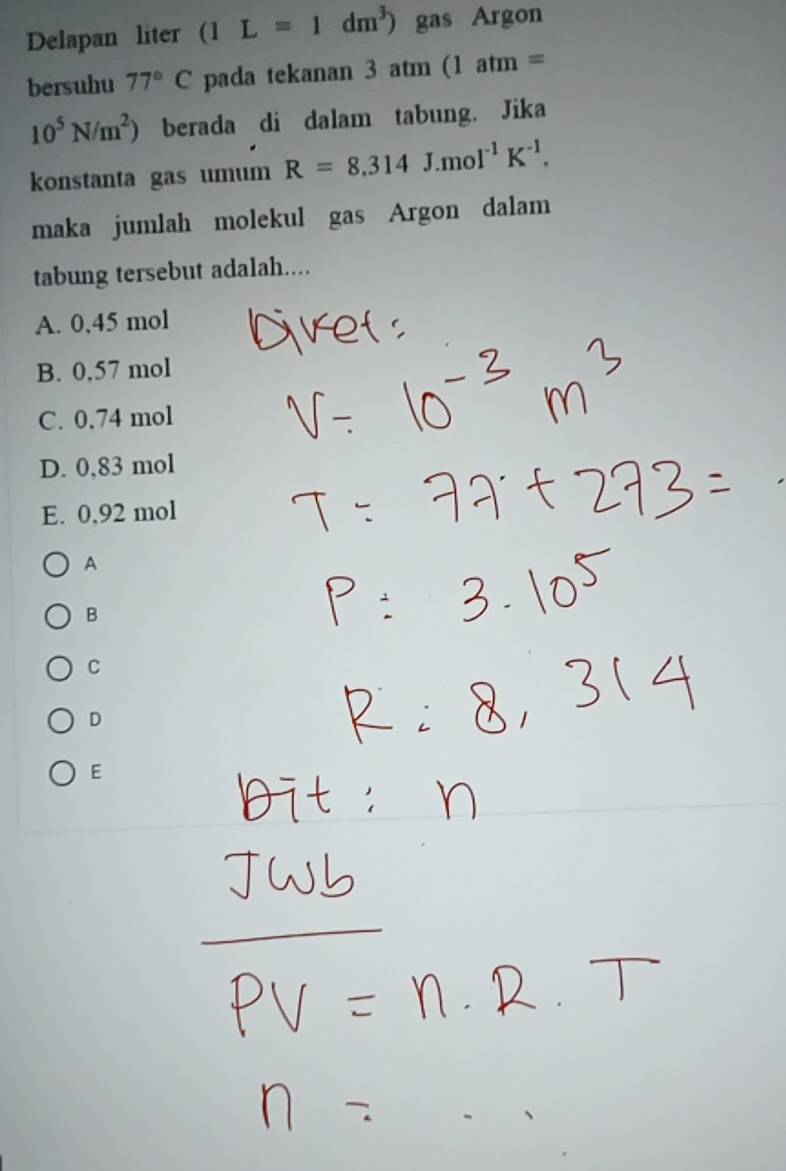 Delapan liter (1 L = 1 dm³) gas Argon
bersuhu 77° C pada tekanan 3 atm (1 atm =
10⁵ N/m²) berada di dalam tabung. Jika
konstanta gas umum R = 8,314 J.mol⁻¹ K⁻¹,
maka jumlah molekul gas Argon dalam
tabung tersebut adalah....
A. 0,45 mol
B. 0,57 mol
C. 0,74 mol
D. 0,83 mol
E. 0,92 mol
A
B
C
D
E
Diket:
V = 10⁻³ m³
T = 77 + 273 =
P = 3.10⁵
R : 8,314
Dit : n
Jwb
PV = n.R.T
n = ...